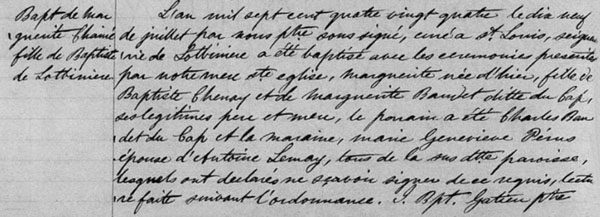 Bapt de mar
guerite Chainé
fille de Baptiste
de Lotbiniere
L'an mil sept cent quatre vingt quatre le dix neuf
de juillet par nous ptre sous signé, curé a St. Louis, seigneu
rie de Lotbiniere a été baptisé avec les ceremonies presentes
par notre mere ste eglise, marguerite née d'hier, fille de
Baptiste Chenay et de marguerite Baudet ditte du Cap
ses legitimes pere et mere, le parain a été Charles Bau
det du Cap et la maraine, marie Genevieve Perus
épouse d'Antoine Lemay, tous de la sus dtte paroisse,
lesquels ont declarés ne sçavoir signer de ce requis, lectu
re faite suivant l'ordonnance. J. Bpt. Gatien ptre